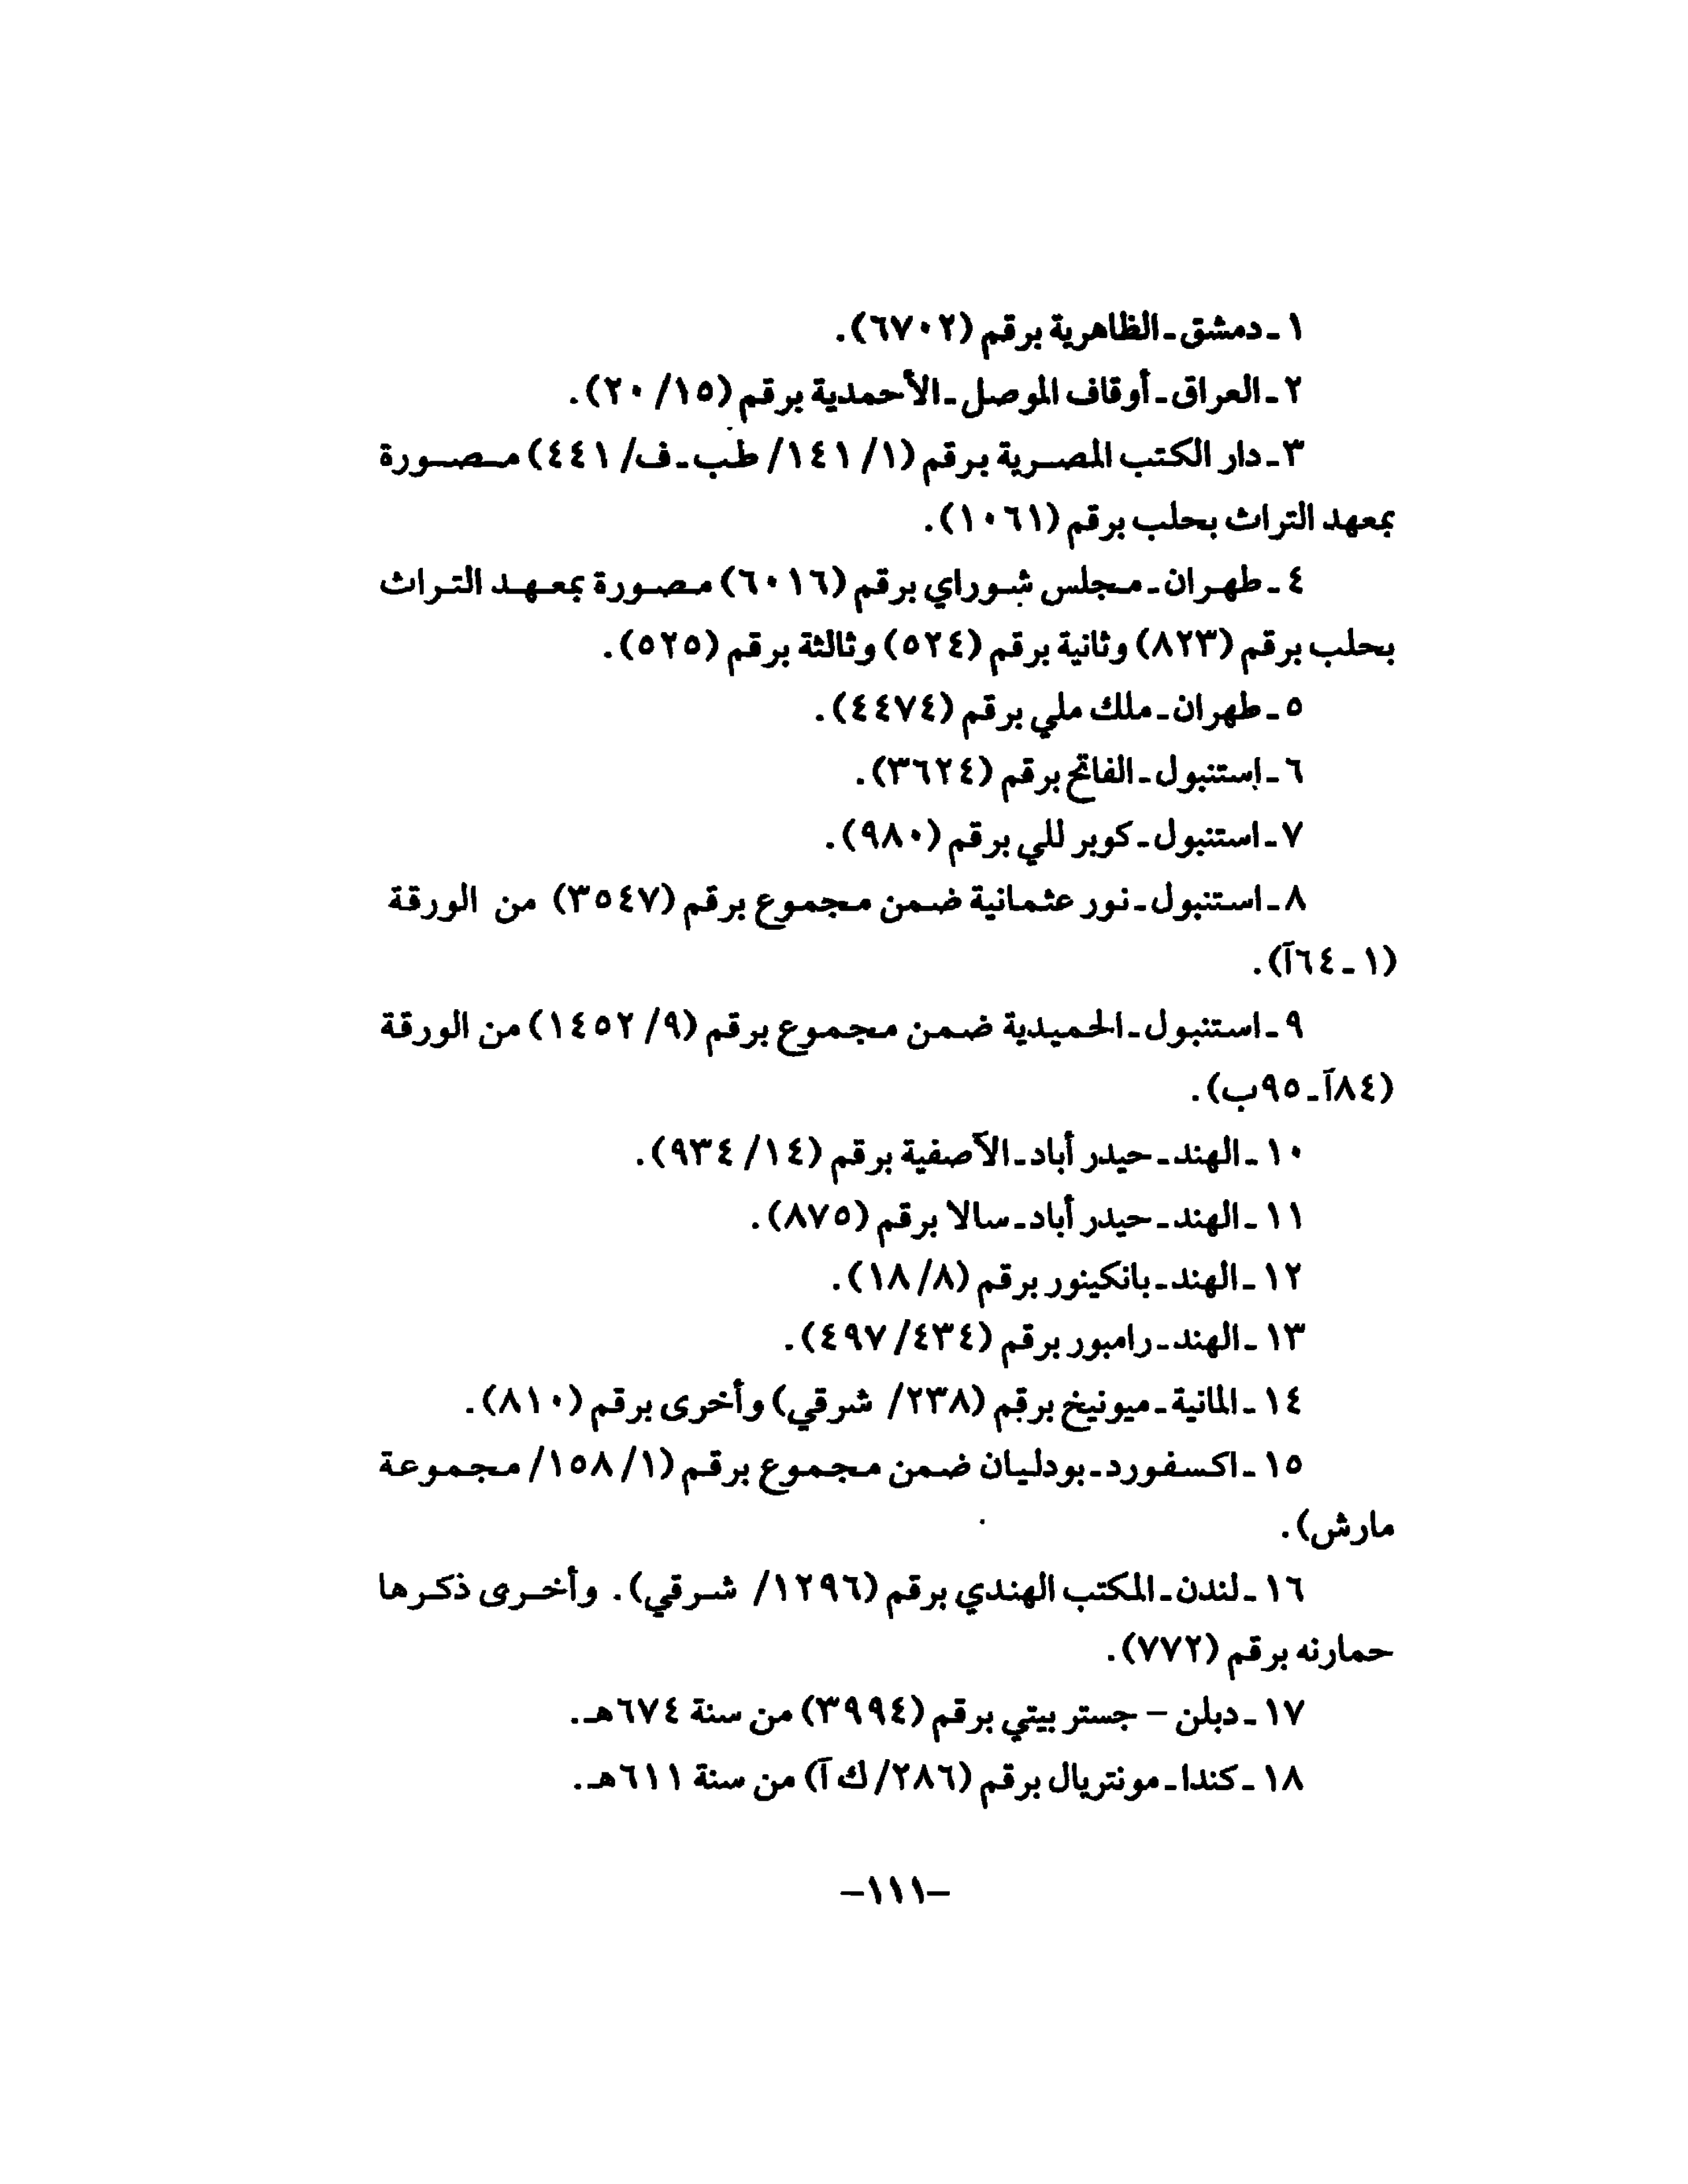 ١ - دمشق - الظاهرية برقم (٦٧٠٢).
٢ - العراق - أوقاف الموصل - الأحمدية برقم (١٥/ ٢٠).
٣ - دار الكتب المصرية برقم (١/ ١٤١/ طب - ف/ ٤٤١) مصورة
بمعهد التراث بحلب برقم (١٠٦١).
٤ - طهران - مجلس شوراي برقم (٦٠١٦) مصورة بمعهد التراث
بحلب برقم (٨٢٣) وثانية برقم (٥٢٤) وثالثة برقم (٥٢٥).
٥ - طهران - ملك ملي برقم (٤٤٧٤).
٦ - إستنبول - الفاتح برقم (٣٦٢٤).
٧ - استنبول - كوبر للي برقم (٩٨٠).
٨ - استنبول - نور عثمانية ضمن مجموع برقم (٣٥٤٧) من الورقة
(١ - ٦٤آ).
٩ - استنبول - الحميدية ضمن مجموع برقم (٩/ ١٤٥٢) من الورقة
(٨٤آ - ٩٥ب).
١٠ - الهند - حيدر أباد - الآصفية برقم (١٤/ ٩٣٤).
١١ - الهند - حيدر أباد - سالا برقم (٨٧٥).
١٢ - الهند - بانكينور برقم (٨/ ١٨).
١٣ - الهند - رامبور برقم (٤٣٤/ ٤٩٧).
١٤ - المانية - ميونيخ برقم (٢٣٨/ شرقي) وأخرى برقم (٨١٠).
١٥ - اكسفورد - بودليان ضمن مجموع برقم (١/ ١٥٨/ مجموعة
مارش).
١٦ - لندن - المكتب الهندي برقم (١٢٩٦/ شرقي). وأخرى ذكرها
حمارنه برقم (٧٧٢).
١٧ - دبلن – جستر بيتي برقم (٣٩٩٤) من سنة ٦٧٤هـ.
١٨ - كندا - مونتريال برقم (٢٨٦/ ك آ) من سنة ٦١١هـ.
–١١١–